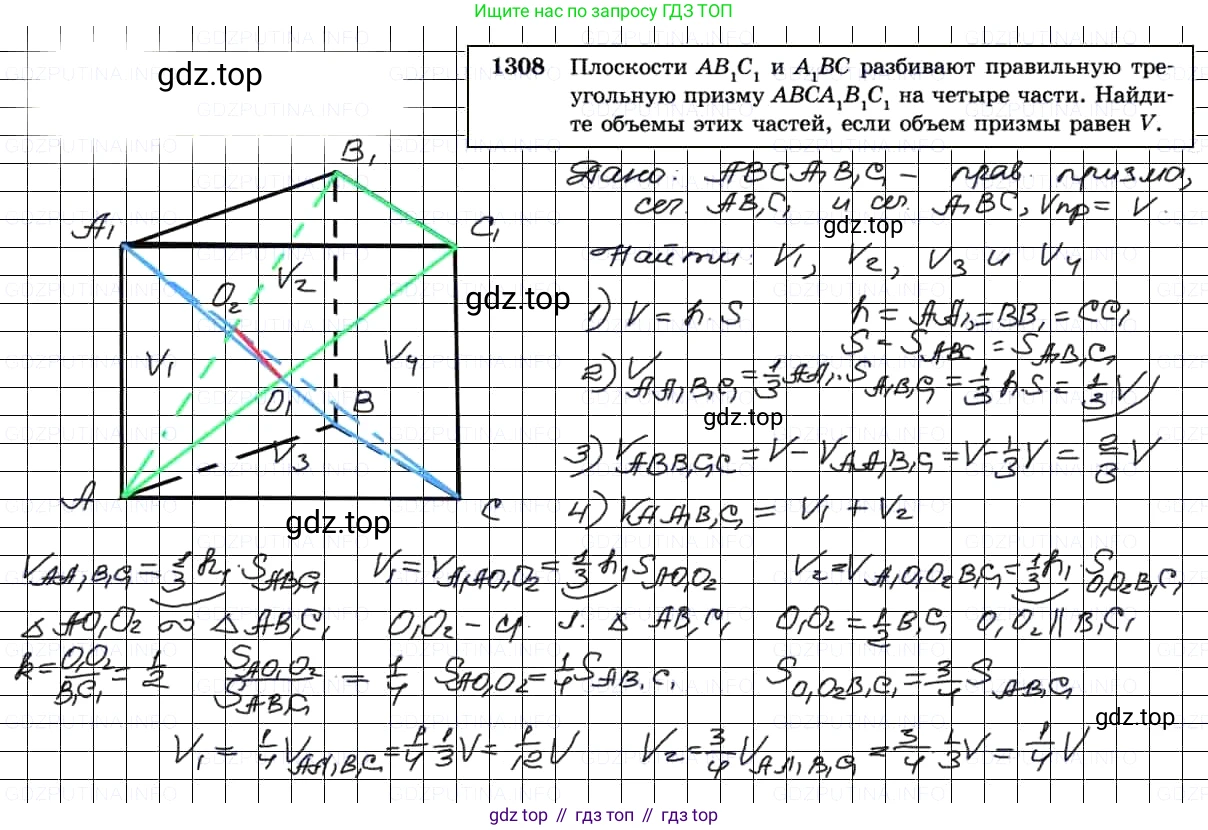 Ищите нас по запросу ГДЗ ТОП
gdz.top
1308 Плоскости AB₁C₁ и A₁BC разбивают правильную тре-
угольную призму ABCA₁B₁C₁ на четыре части. Найди-
те объемы этих частей, если объем призмы равен V.
Дано: ABCA₁B₁C₁ – прав. призма,
сеч. AB₁C₁ и сеч. A₁BC, Vпр = V.
gdz.top
Найти: V₁, V₂, V₃ и V₄
B₁
A₁
C₁
V₂
O₂
V₁
V₄
O₁
B
V₃
A
C
gdz.top
gdz.top
1) V = h · S h = AA₁ = BB₁ = CC₁
S = S_ABC = S_A₁B₁C₁
2) V_AA₁B₁C₁ = 1/3 AA₁ · S_A₁B₁C₁ = 1/3 h · S = 1/3 V
gdz.top
3) V_ABB₁C₁C = V – V_AA₁B₁C₁ = V – 1/3 V = 2/3 V
4) V_AA₁B₁C₁ = V₁ + V₂
V_AA₁B₁C₁ = 1/3 h₁ · S_AB₁C₁ V₁ = V_A₁AO₁O₂ = 1/3 h₁ S_AO₁O₂ V₂ = V_A₁O₁O₂B₁C₁ = 1/3 h₁ · S_O₁O₂B₁C₁
△ AO₁O₂ ∞ △ AB₁C₁ O₁O₂ – ср. л. △ AB₁C₁ O₁O₂ = 1/2 B₁C₁ O₁O₂ || B₁C₁
k = O₁O₂/B₁C₁ = 1/2 S_AO₁O₂/S_AB₁C₁ = 1/4 S_AO₁O₂ = 1/4 S_AB₁C₁ S_O₁O₂B₁C₁ = 3/4 S_AB₁C₁
gdz.top
V₁ = 1/4 V_AA₁B₁C₁ = 1/4 · 1/3 V = 1/12 V V₂ = 3/4 V_AA₁B₁C₁ = 3/4 · 1/3 V = 1/4 V
gdz.top // гдз топ // gdz top